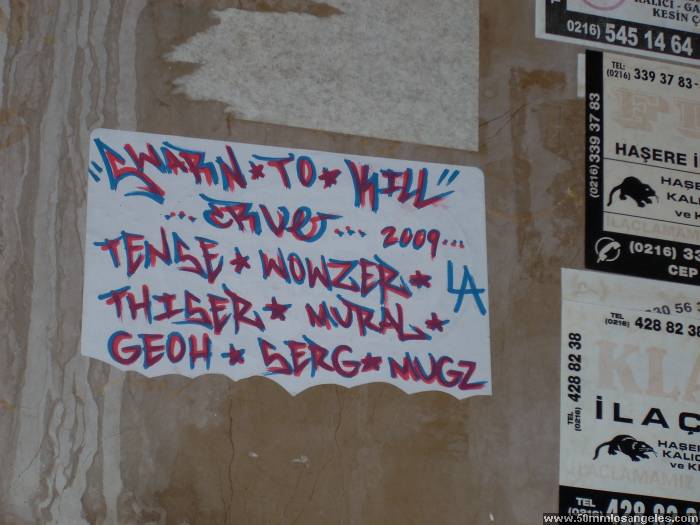 "SWARN★TO★KILL"
...ERVE... 2009...
TENSE★WOWZER★
LA
THISER★MURAL★
GEOH★SERG★MUGZ
KESİN Ç
(0216) 545 14 64
TEL:
(0216) 339 37 83-
(0216) 339 37 83
HAŞERE İ
HAŞE
KALIC
ve K
(0216) 33
CEP
30 56 3
TEL
(0216) 428 82 38
TEL
(0216) 428 82 38
KLA
İLAÇ
HAŞE
KALIC
ve K
TEL
(0216) 429 82
www.50mmlosangeles.com